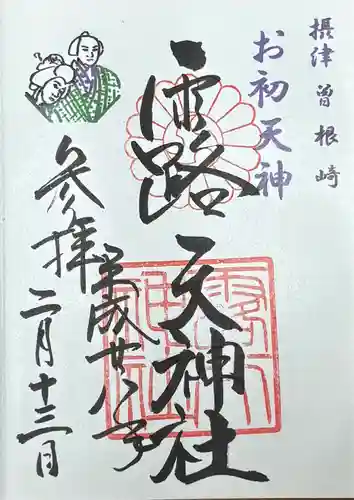 摂津 曽根崎
お初天神
露天神社
参拝
平成廿八年
二月十三日